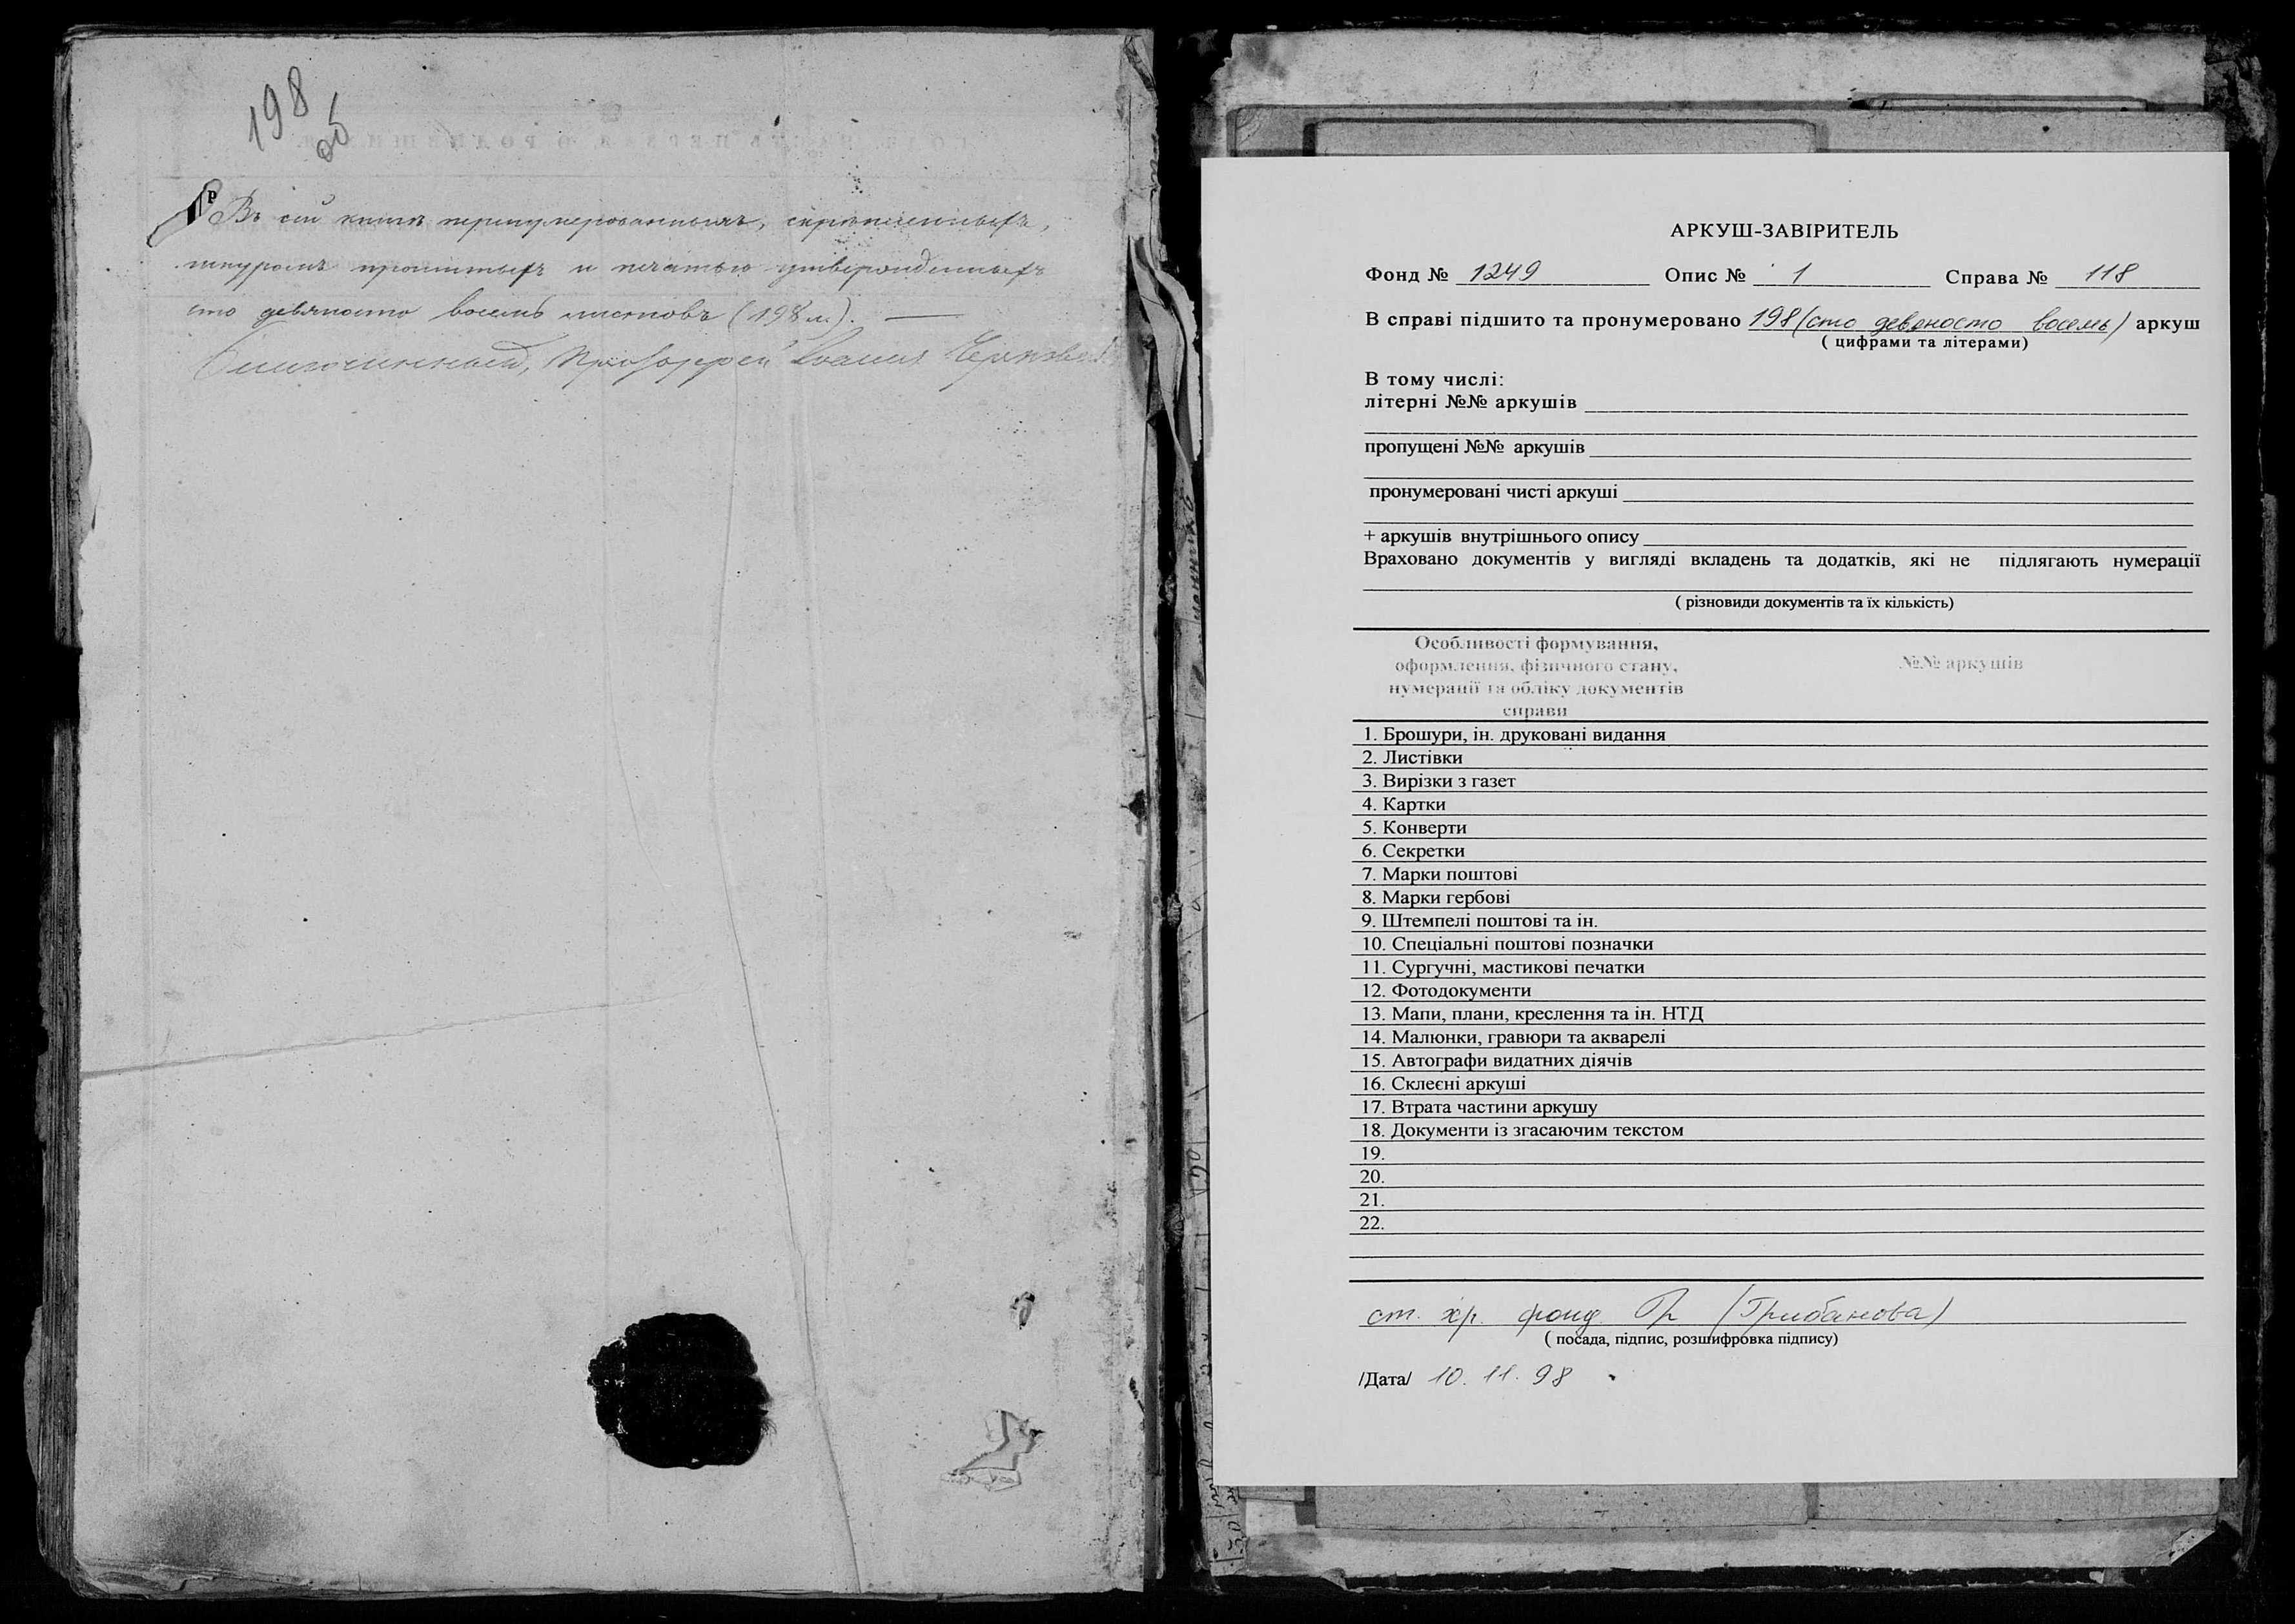 198
об
Въ сей книгѣ пронумерованныхъ, скрѣпленныхъ,
шнуромъ прошитыхъ и печатью утвержденныхъ
сто девяносто восемь листовъ (198 л.). —
Протоіерей Іоаннъ
АРКУШ-ЗАВІРИТЕЛЬ
Фонд № 1249 Опис № 1 Справа № 118
В справі підшито та пронумеровано 198 (сто девяносто восемь) аркуш
( цифрами та літерами)
В тому числі:
літерні №№ аркушів
пропущені №№ аркушів
пронумеровані чисті аркуші
+ аркушів внутрішнього опису
Враховано документів у вигляді вкладень та додатків, які не підлягають нумерації
( різновиди документів та їх кількість)
Особливості формування,
оформлення, фізичного стану, №№ аркушів
нумерації та обліку документів
справи
1. Брошури, ін. друковані видання
2. Листівки
3. Вирізки з газет
4. Картки
5. Конверти
6. Секретки
7. Марки поштові
8. Марки гербові
9. Штемпелі поштові та ін.
10. Спеціальні поштові позначки
11. Сургучні, мастикові печатки
12. Фотодокументи
13. Мапи, плани, креслення та ін. НТД
14. Малюнки, гравюри та акварелі
15. Автографи видатних діячів
16. Склеєні аркуші
17. Втрата частини аркушу
18. Документи із згасаючим текстом
19.
20.
21.
22.
ст. хр. фонд. Гр (Грибанова)
( посада, підпис, розшифровка підпису)
/Дата/ 10. 11. 98